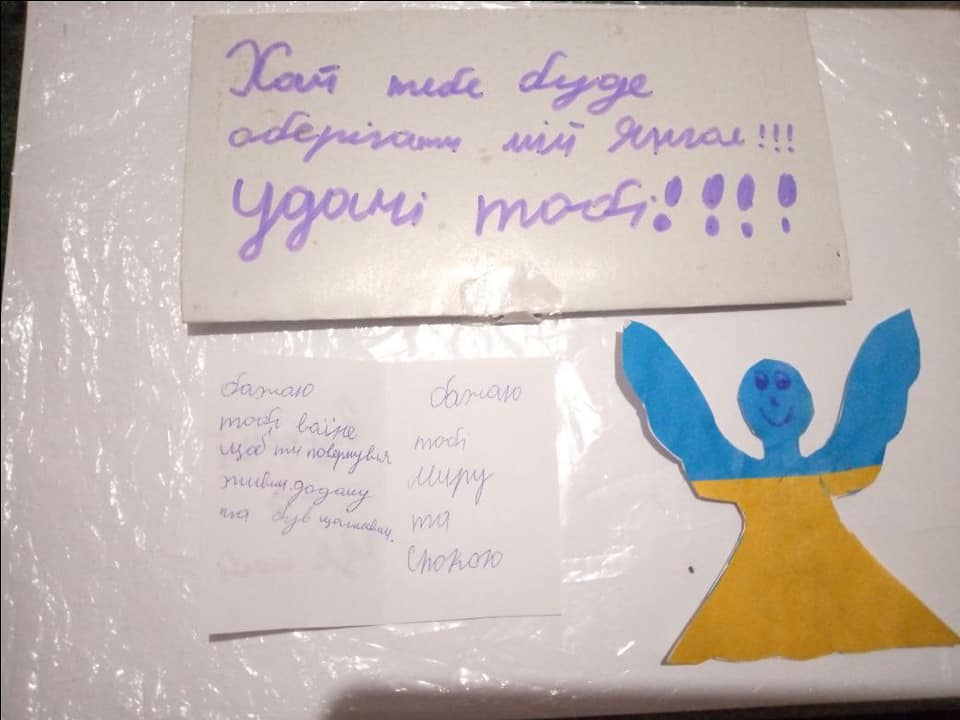 Хай тебе буде
оберігати мій Янгол!!!
Удачі тобі!!!!
бажаю
тобі воїне
щоб ти повернувся
живим додому
та був щасливим.
бажаю
тобі
миру
та
спокою